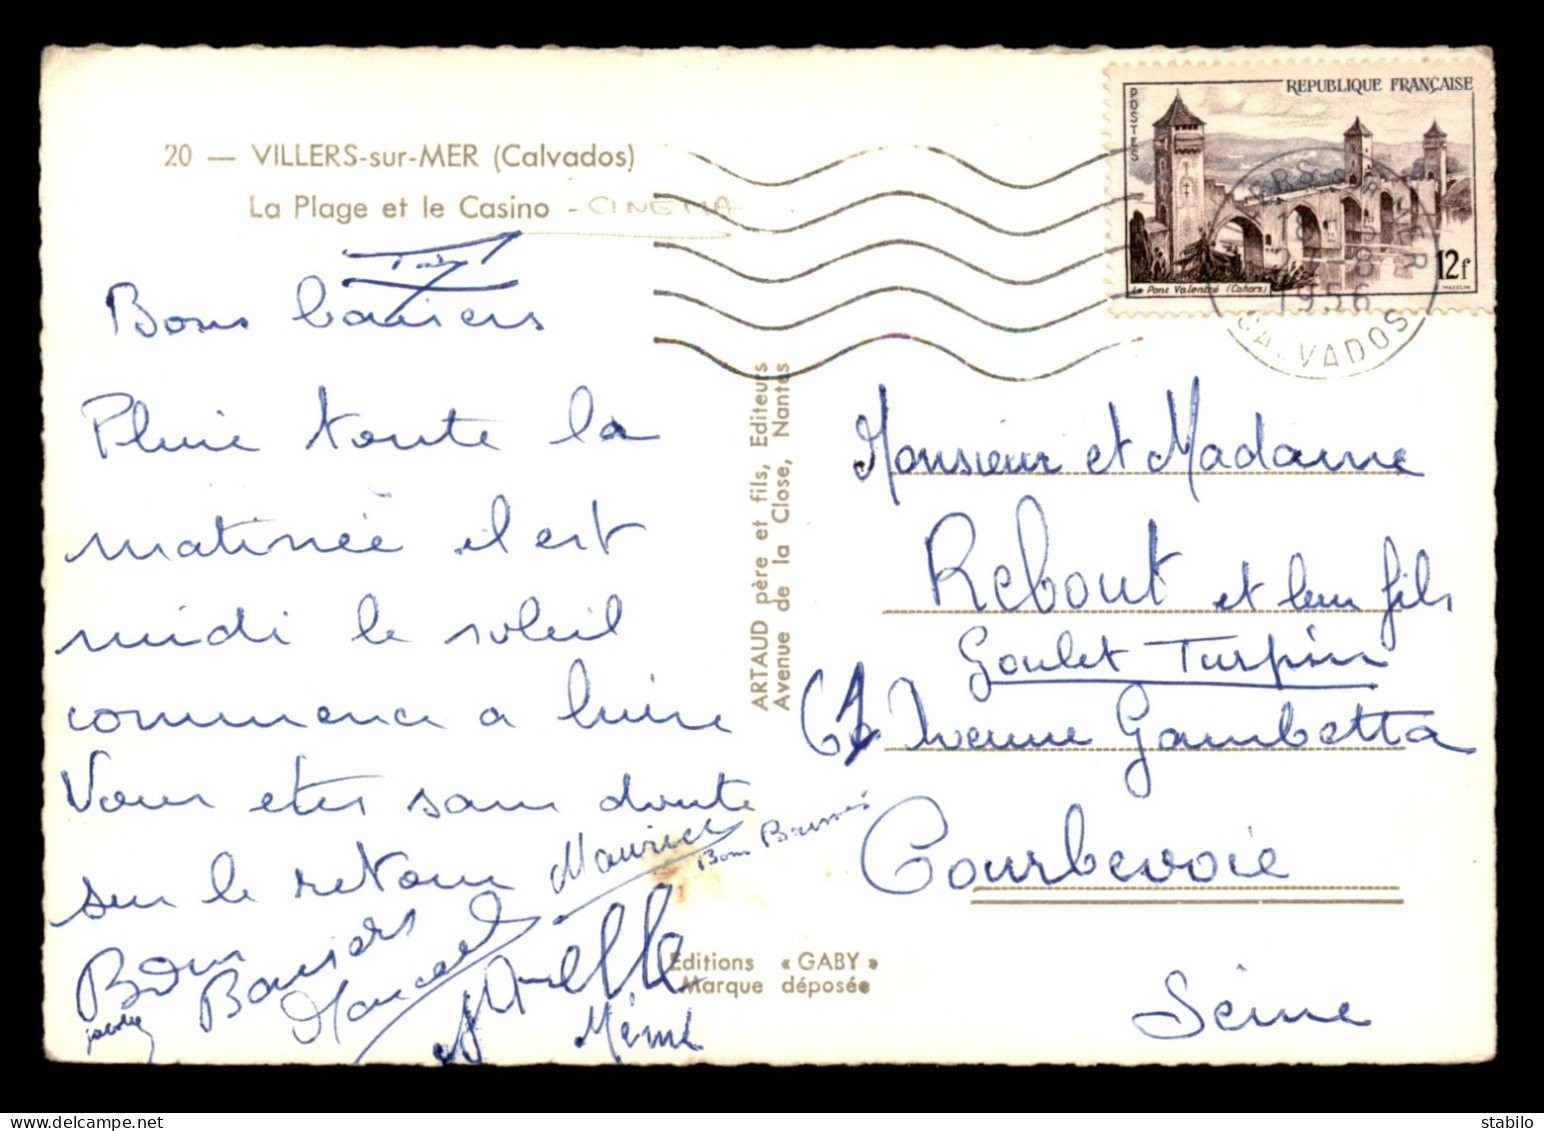 20 — VILLERS-sur-MER (Calvados)
La Plage et le Casino - CINEMA
Bons baisers
Pluie toute la
matinée il est
midi le soleil
commence a luire
Vous etes sans doute
sur le retour
Maurice
Bons Baisers
Bons Baisers
Marcel
Mémé
ARTAUD père et fils, Editeurs
Avenue de la Close, Nantes
Editions « GABY »
Marque déposée
REPUBLIQUE FRANÇAISE
POSTES
12f
Le Pont Valentré (Cahors)
MAZELIN
18
-8
1956
CALVADOS
Monsieur et Madame
Rebout et leur fils
Goulet Turpin
Avenue Gambetta
Courbevoie
Seine
www.delcampe.net
strobbe-cartes